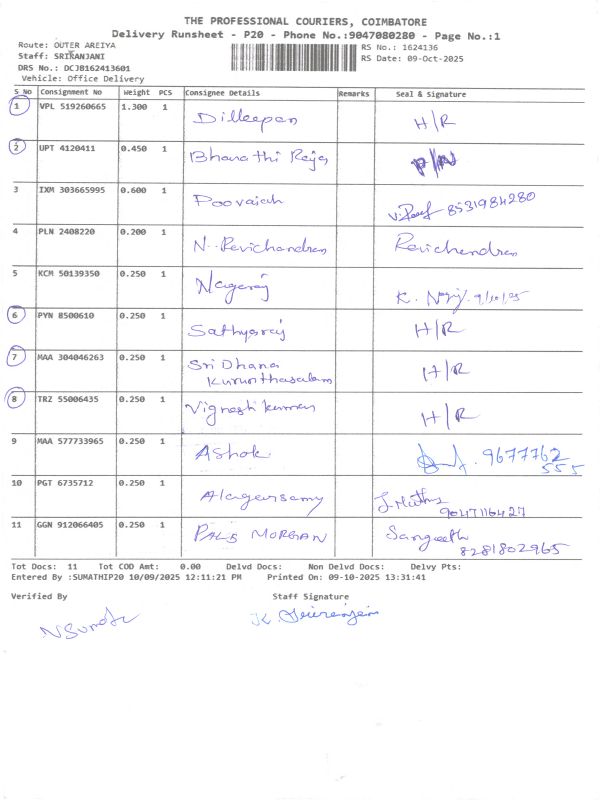 THE PROFESSIONAL COURIERS, COIMBATORE
Delivery Runsheet - P20 - Phone No.:9047080280 - Page No.:1
Route: OUTER AREIYA
RS No.: 1624136
Staff: SRIRANJANI
RS Date: 09-Oct-2025
DRS No.: DCJ8162413601
Vehicle: Office Delivery
S No Consignment No Weight PCS Consignee Details Remarks Seal & Signature
1 VPL 519260665 1.300 1 Dilleepan H/R
2 UPT 4120411 0.450 1 Bharathi Raja
3 IXM 303665995 0.600 1 Poovaiah 8531984280
4 PLN 2408220 0.200 1 N. Ravichandran Ravichandran
5 KCM 50139350 0.250 1 Nagaraj K. 9/10/25
6 PYN 8500610 0.250 1 Sathyaraj H/R
7 MAA 304046263 0.250 1 Sri Dhana H/R
8 TRZ 55006435 0.250 1 Vignesh kumar H/R
9 MAA 577733965 0.250 1 Ashok 9677762
555
10 PGT 6735712 0.250 1 Alagarsamy J. Muthu
9047116427
11 GGN 912066405 0.250 1 PALS MORGAN Sangeeth
8281802965
Tot Docs: 11 Tot COD Amt: 0.00 Delvd Docs: Non Delvd Docs: Delvy Pts:
Entered By :SUMATHIP20 10/09/2025 12:11:21 PM Printed On: 09-10-2025 13:31:41
Verified By Staff Signature